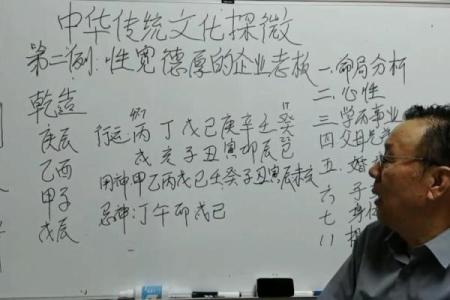 中华传统文化探微
第二例:性宽德厚的企业老板
乾造
庚辰
乙酉
甲子
戊辰
行运:丙丁戊己庚辛壬癸
戌亥子丑寅卯辰巳
用神甲乙丙戊己壬癸子丑寅辰
忌神:丁午卯戊己
一.命局分析
二.心性
三.学历事业
四.父母兄
五.婚
六.子
七.身体
八